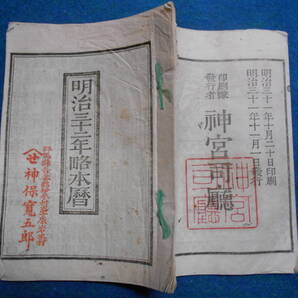 明治三十一年十月二十日印刷
明治三十一年十一月一日發行
印刷兼
發行者
神宮司廳
明治三十二年略本暦
神保寬五郎